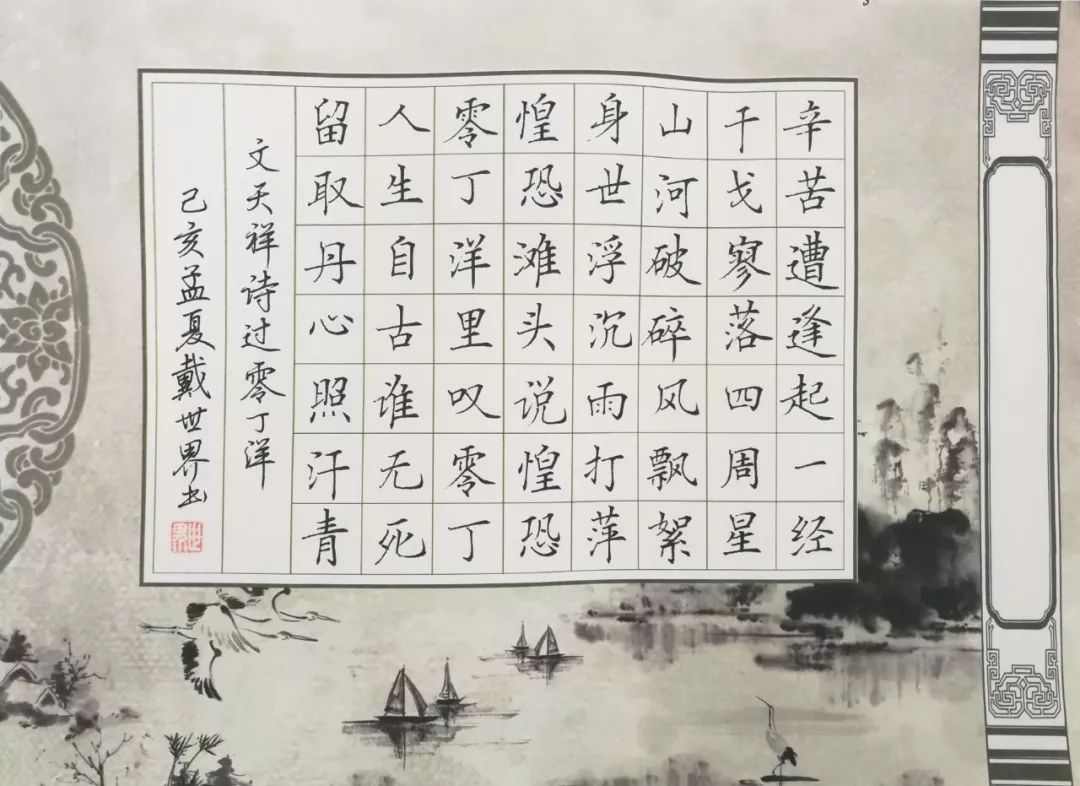 辛苦遭逢起一经
干戈寥落四周星
山河破碎风飘絮
身世浮沉雨打萍
惶恐滩头说惶恐
零丁洋里叹零丁
人生自古谁无死
留取丹心照汗青
文天祥诗过零丁洋
己亥孟夏戴世界书